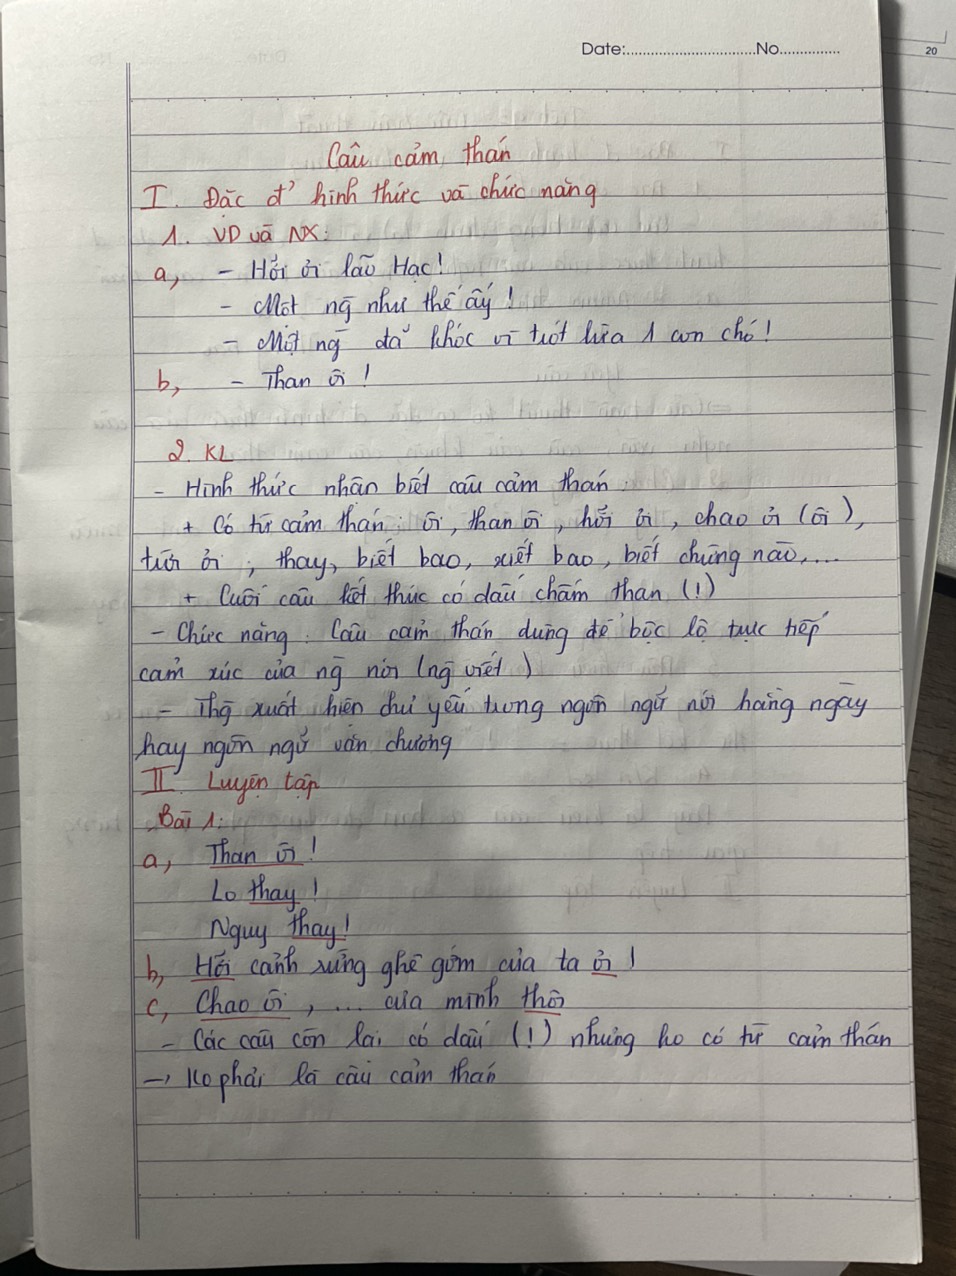 Date:..............................No...............
20
Câu cảm thán
I. Đặc đ' hình thức và chức năng
1. VD và NX:
a, - Hỡi ơi lão Hạc!
- Một ng̃ như thế ấy!
- Một ng̃ đã khóc vì trót lừa 1 con chó!
b, - Than ôi!
2. KL
- Hình thức nhận biết câu cảm thán:
+ Có từ cảm thán: ôi, than ôi, hỡi ơi, chao ơi (ôi),
trời ơi; thay, biết bao, xiết bao, biết chừng nào,...
+ Cuối câu kết thúc có dấu chấm than (!)
- Chức năng: Câu cảm thán dùng để bộc lộ trực tiếp
cảm xúc của ng̃ nói (ng̃ viết)
- Thg̃ xuất hiện chủ yếu trong ngôn ngữ nói hằng ngày
hay ngôn ngữ văn chương
II. Luyện tập
Bài 1:
a, Than ôi!
Lo thay!
Nguy thay!
b, Hỡi cảnh rừng ghê gớm của ta ơi!
c, Chao ôi, ... của mình thôi
- Các câu còn lại có dấu (!) nhưng ko có từ cảm thán
→ Ko phải là câu cảm thán